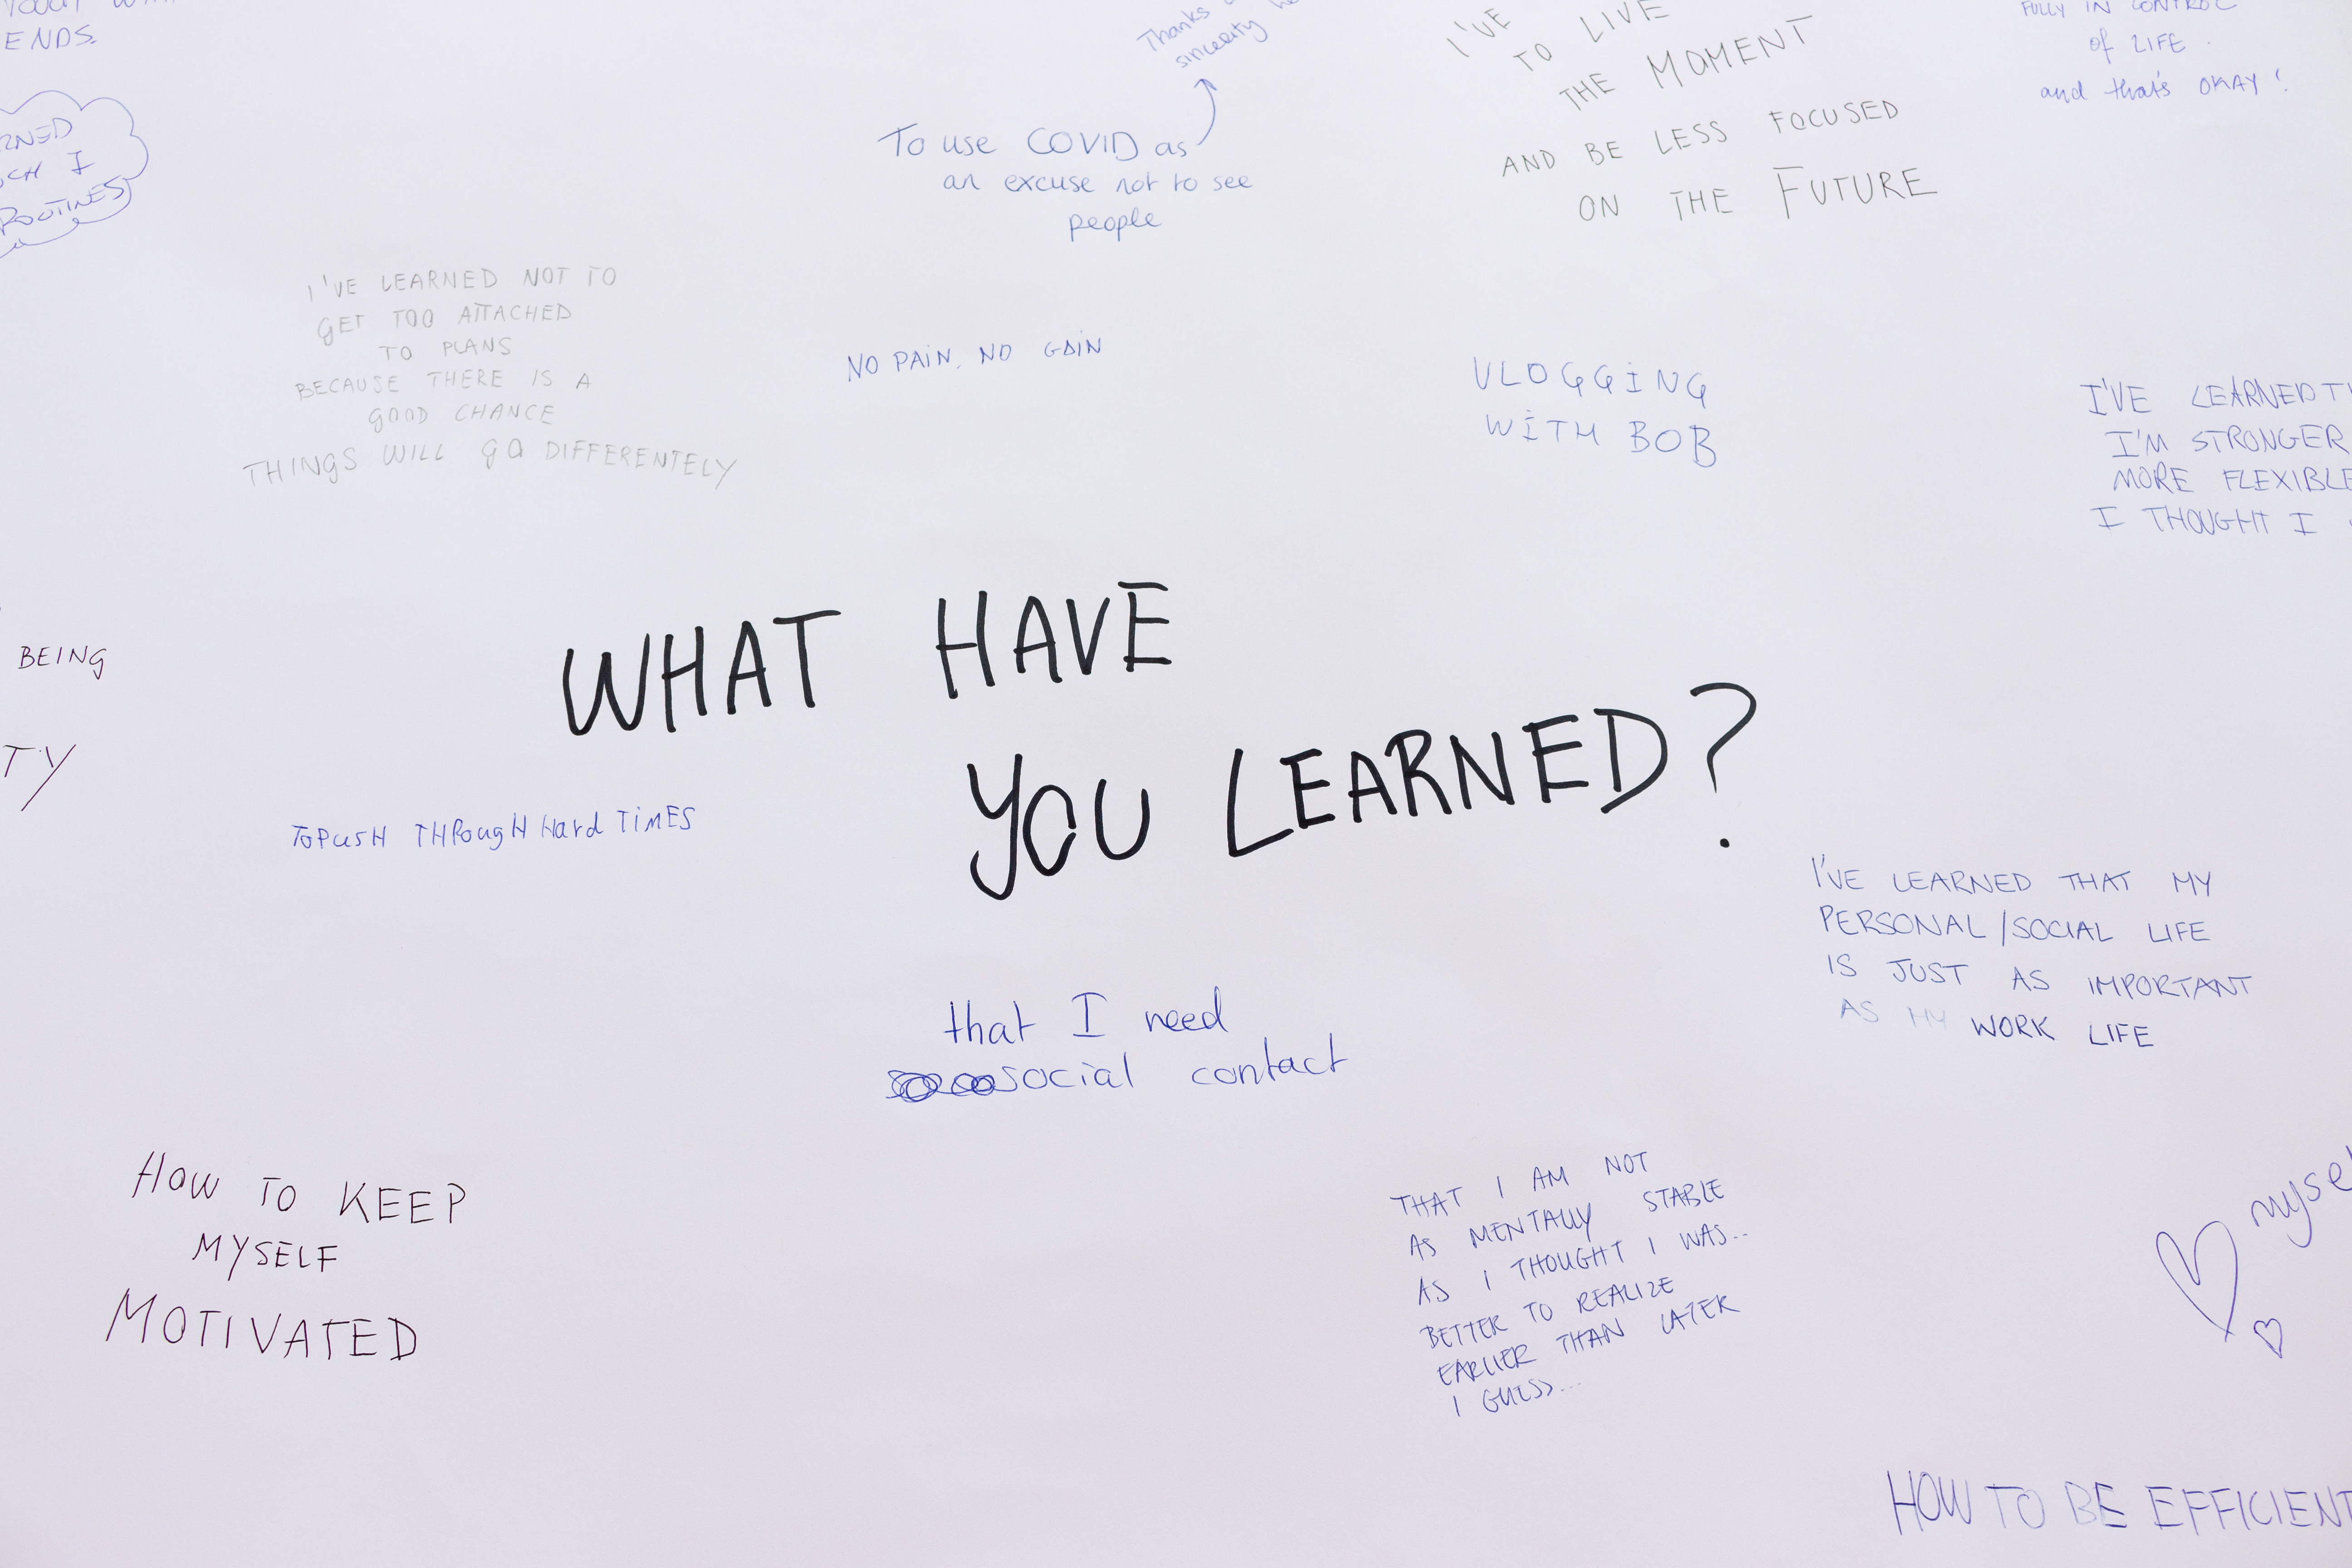 ENDS.
RNED
CH I
ROUTINES
Thanks
sincerity
To use COVID as
an excuse not to see
people
I'VE
TO LIVE
THE MOMENT
AND BE LESS FOCUSED
ON THE FUTURE
FULLY IN CONTROL
of LIFE.
and that's OKAY!
I'VE LEARNED NOT TO
GET TOO ATTACHED
TO PLANS
BECAUSE THERE IS A
GOOD CHANCE
THINGS WILL GO DIFFERENTELY
NO PAIN, NO GAIN
VLOGGING
WITH BOB
I'VE LEARNED
I'M STRONGER
MORE FLEXIBLE
I THOUGHT I
WHAT HAVE
YOU LEARNED?
BEING
TY
TO PUSH THROUGH HARD TIMES
I'VE LEARNED THAT MY
PERSONAL/SOCIAL LIFE
IS JUST AS IMPORTANT
AS MY WORK LIFE
that I need
social contact
HOW TO KEEP
MYSELF
MOTIVATED
THAT I AM NOT
AS MENTALLY STABLE
AS I THOUGHT I WAS..
BETTER TO REALIZE
EARLIER THAN LATER
I GUESS...
myse
HOW TO BE EFFICIENT